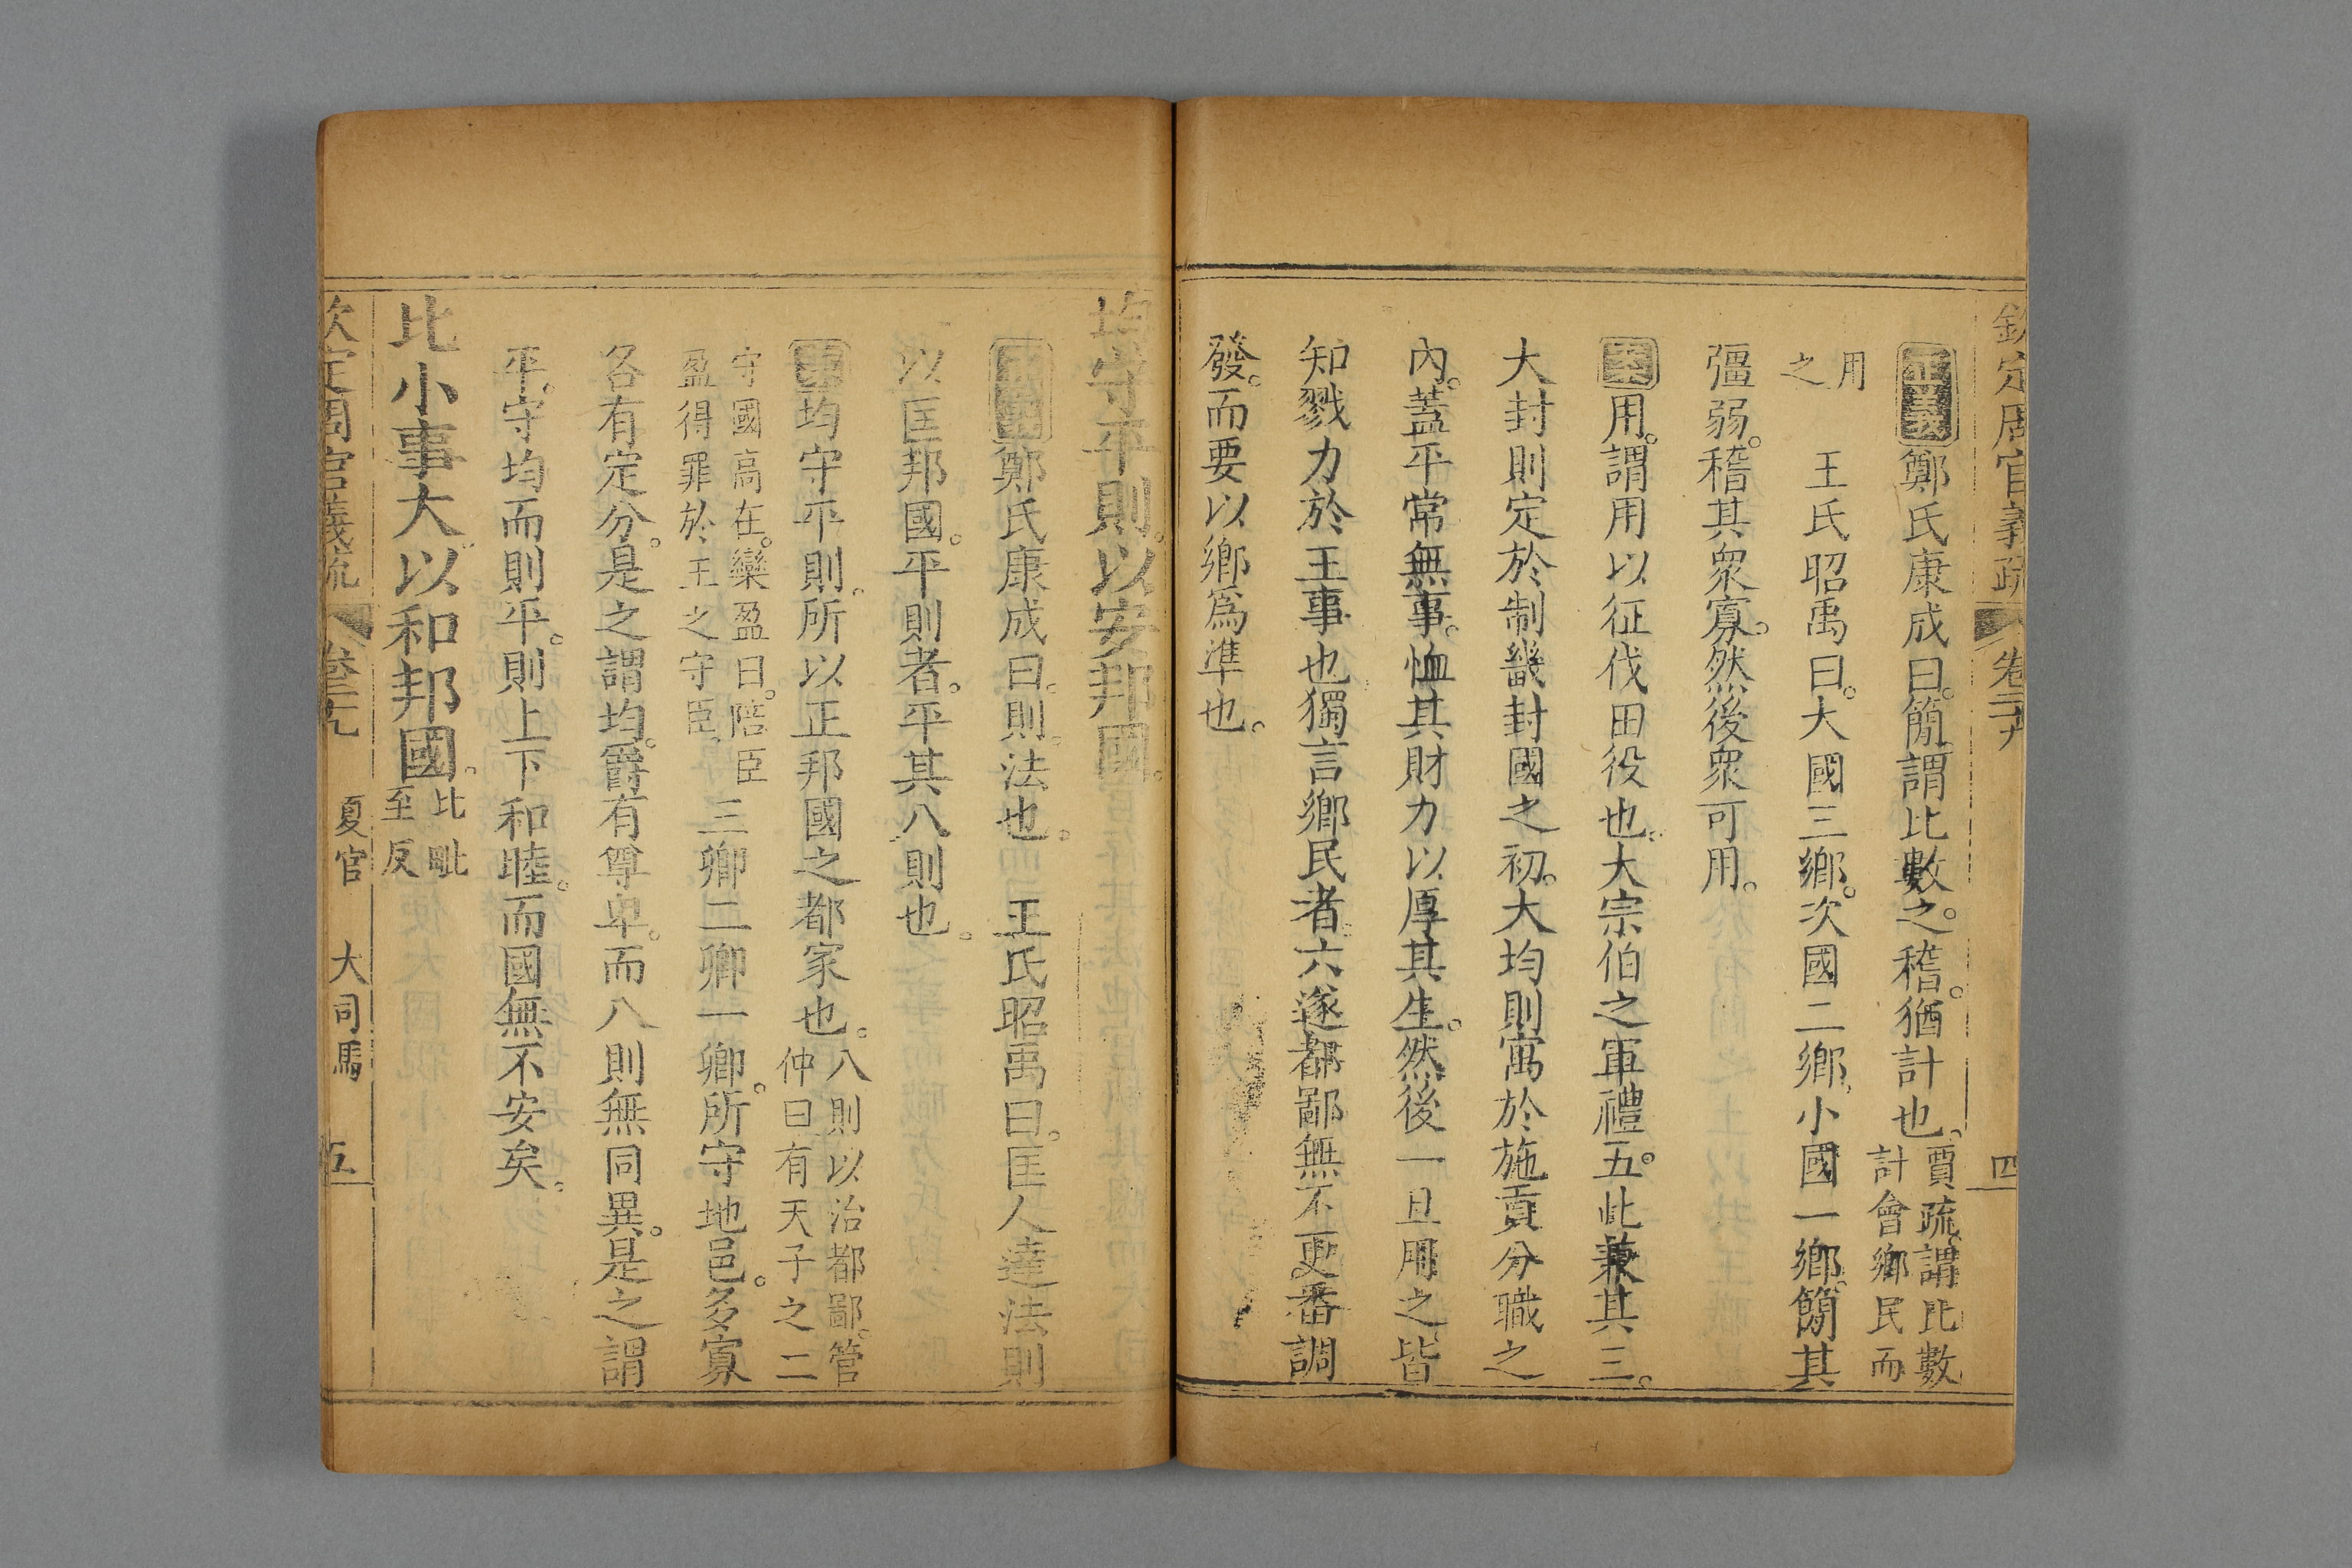 欽定周官義疏 卷二十九 四
正義鄭氏康成曰。簡謂比數之。稽。猶計也。賈疏。謂比數計會鄉民而
用之 王氏昭禹曰。大國三鄉。次國二鄉。小國一鄉。簡其
彊弱。稽其衆寡。然後衆可用。
案用。謂用以征伐田役也。大宗伯之軍禮五。此兼其三。
大封則定於制畿封國之初。大均則寓於施貢分職之
內。蓋平常無事。恤其財力以厚其生。然後一旦用之皆
知戮力於王事也獨言鄉民者。六遂都鄙無不更番調
發。而要以鄉爲準也。
均守平則。以安邦國。
正義鄭氏康成曰。則。法也。 王氏昭禹曰。匡人達法則
以匡邦國。平則者。平其八則也。
案均守平則。所以正邦國之都家也。八則以治都鄙。管仲曰有天子之二
守國高在。欒盈曰。陪臣盈得罪於王之守臣。三卿二卿一卿。所守地邑。多寡
各有定分。是之謂均。爵有尊卑。而八則無同異。是之謂
平。守均而則平。則上下和睦。而國無不安矣。
比小事大。以和邦國。比毗至反
欽定周官義疏 卷二十九 夏官 大司馬 五